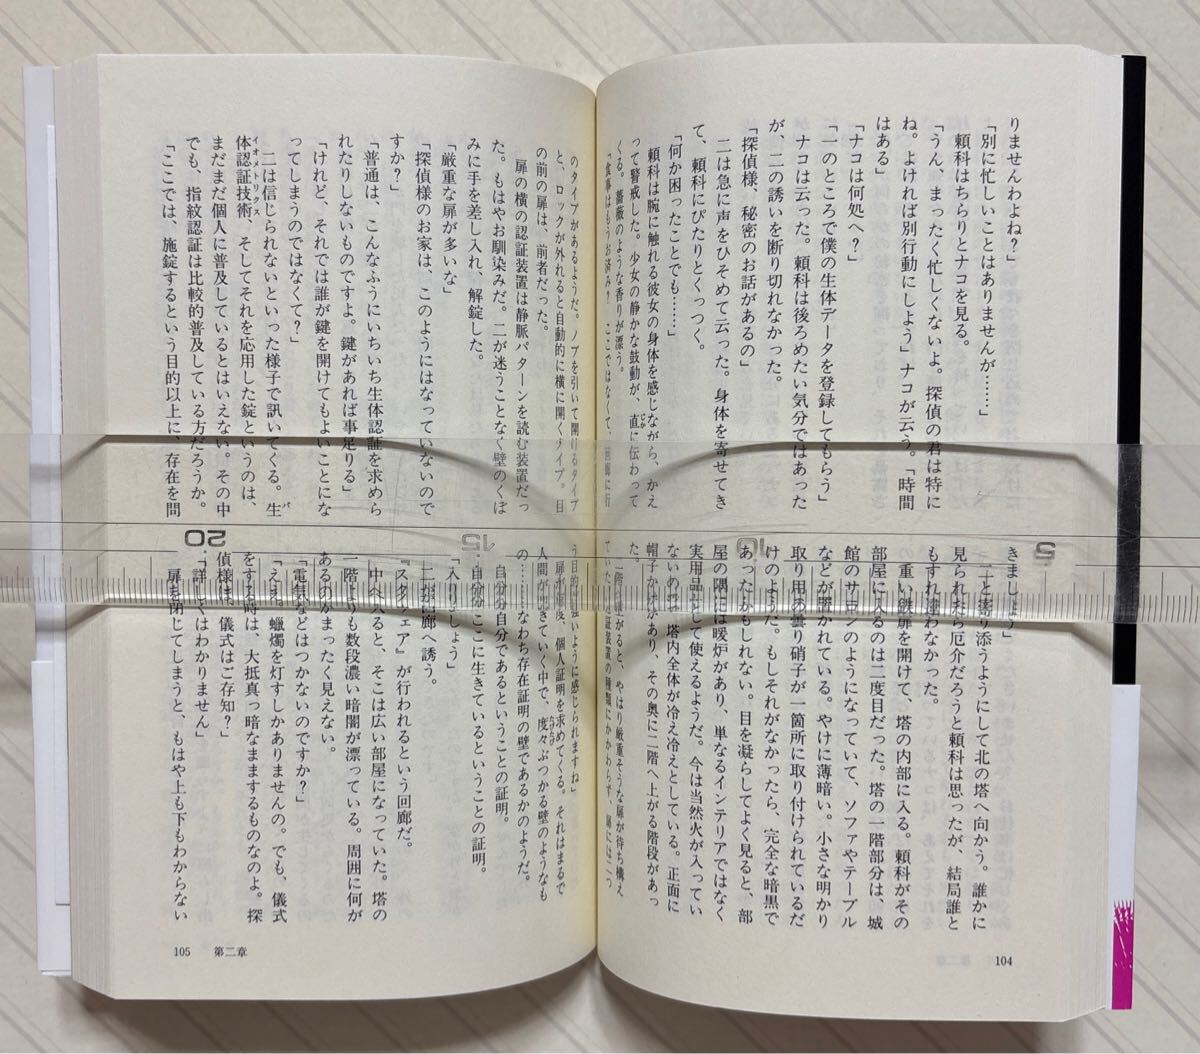 りませんわよね？」
「別に忙しいことはありませんが……」
頼科はちらりとナコを見る。
「うん、まったく忙しくないよ。探偵の君は特に
ね。よければ別行動にしよう」ナコが云う。「時間
はある」
「ナコは何処へ？」
「一のところで僕の生体データを登録してもらう」
ナコは云った。頼科は後ろめたい気分ではあった
が、二の誘いを断り切れなかった。
「探偵様、秘密のお話があるの」
二は急に声をひそめて云った。身体を寄せてき
て、頼科にぴたりとくっつく。
「何か困ったことでも……」
頼科は腕に触れる彼女の身体を感じながら、かえ
って警戒した。少女の静かな鼓動が、直に伝わって
くる。薔薇のような香りが漂う。
「食事はもうお済み？　ここではなくて、回廊に行
きましょう」
二と寄り添うようにして北の塔へ向かう。誰かに
見られたら厄介だろうと頼科は思ったが、結局誰と
もすれ違わなかった。
の重い鉄扉を開けて、塔の内部に入る。頼科がその
部屋に入るのは二度目だった。塔の一階部分は、城
館のサロンのようになっていて、ソファやテーブル
などが置かれている。やけに薄暗い。小さな明かり
取り用の曇り硝子が一箇所に取り付けられているだ
けのようだ。もしそれがなかったら、完全な暗黒で
あったかもしれない。目を凝らしてよく見ると、部
屋の隅には暖炉があり、単なるインテリアではなく
実用品として使えるようだ。今は当然火が入ってい
ないので、塔内全体が冷え冷えとしている。正面に
帽子かけがあり、その奥に二階へ上がる階段があっ
た。
二階へ上がると、やはり厳重そうな扉が待ち構え
ていた。認証装置の種類にかかわらず、扉には二つ
104
のタイプがあるようだ。ノブを引いて開けるタイプ
と、ロックが外れると自動的に横に開くタイプ。目
の前の扉は、前者だった。
扉の横の認証装置は静脈パターンを読む装置だっ
た。もはやお馴染みだ。二が迷うことなく壁のくぼ
みに手を差し入れ、解錠した。
「厳重な扉が多いな」
「探偵様のお家は、このようにはなっていないので
すか？」
「普通は、こんなふうにいちいち生体認証を求めら
れたりしないものですよ。鍵があれば事足りる」
「けれど、それでは誰が鍵を開けてもよいことにな
ってしまうのではなくて？」
二は信じられないといった様子で訊いてくる。生
体認証技術、そしてそれを応用した錠というのは、
まだまだ個人に普及しているとはいえない。その中
でも、指紋認証は比較的普及している方だろうか。
「ここでは、施錠するという目的以上に、存在を問
う目的が強いように感じられますね」
扉が毎度、個人証明を求めてくる。それはまるで
人間が生きていく中で、度々ぶつかる壁のようなも
の……すなわち存在証明の壁であるかのようだ。
自分が自分であるということの証明。
自分が、ここに生きているということの証明。
「入りましょう」
二が回廊へ誘う。
『スクウェア』が行われるという回廊だ。
中へ入ると、そこは広い部屋になっていた。塔の
一階よりも数段濃い暗闇が漂っている。周囲に何が
あるのかまったく見えない。
「電気などはつかないのですか？」
「ええ。蠟燭を灯すしかありませんの。でも、儀式
をする時は、大抵真っ暗なままするものなのよ。探
偵様は、儀式はご存知？」
「詳しくはわかりません」
扉を閉じてしまうと、もはや上も下もわからない
105　第二章
5
10
15
20